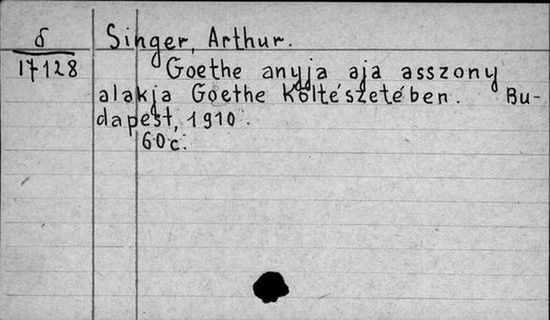 δ
17128
Singer, Arthur.
Goethe anyja aja asszony
alakja Goethe költészetében. Bu-
dapest, 1910.
60c.